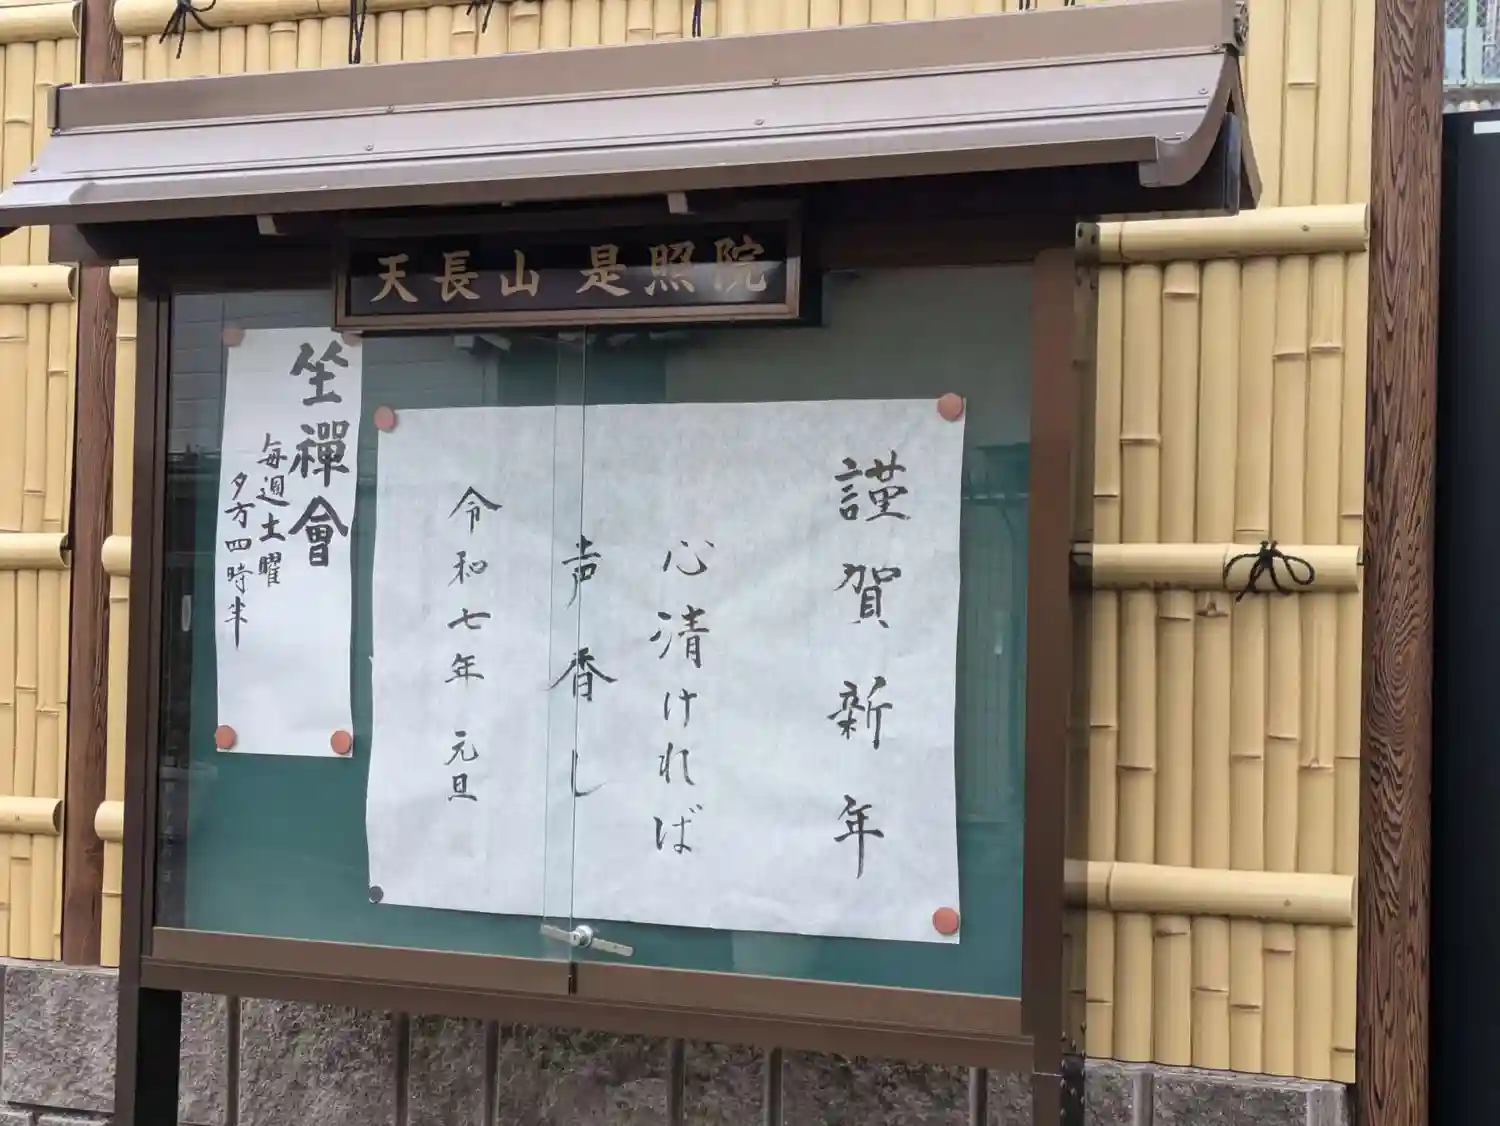 天長山 是照院
謹賀新年
心清ければ
声香し
令和七年 元旦
坐禪會
毎週土曜
夕方四時半